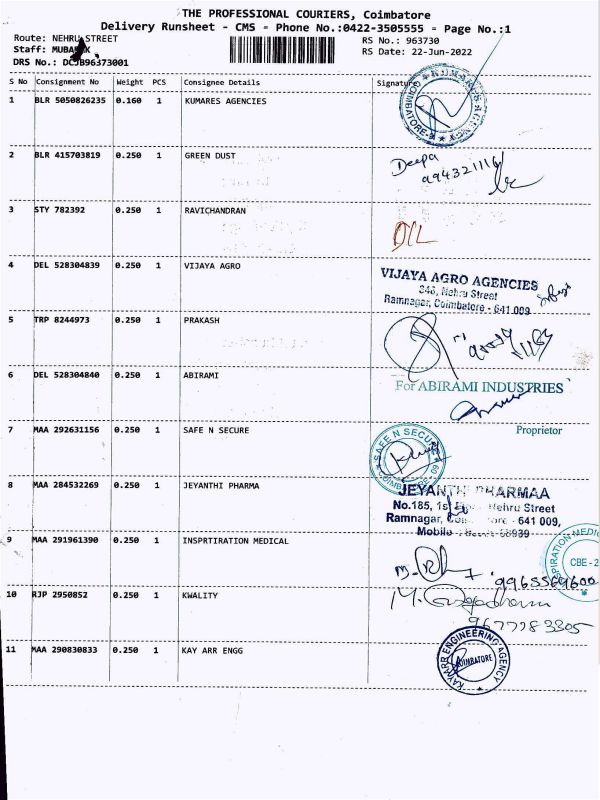 THE PROFESSIONAL COURIERS, Coimbatore
Delivery Runsheet - CMS - Phone No.:0422-3505555 - Page No.:1
Route: NEHRU STREET
RS No.: 963730
Staff: MUBARAK
RS Date: 22-Jun-2022
DRS No.: DCJB96373001
S No Consignment No Weight PCS Consignee Details Signature
1 BLR 5050826235 0.160 1 KUMARES AGENCIES
2 BLR 415703819 0.250 1 GREEN DUST
Deepa
3 STY 782392 0.250 1 RAVICHANDRAN
D/L
4 DEL 528304839 0.250 1 VIJAYA AGRO
VIJAYA AGRO AGENCIES
346, Nehru Street
Ramnagar, Coimbatore - 641 009
5 TRP 8244973 0.250 1 PRAKASH
6 DEL 528304840 0.250 1 ABIRAMI
For ABIRAMI INDUSTRIES
Proprietor
7 MAA 292631156 0.250 1 SAFE N SECURE
SAFE N SECURE
8 MAA 284532269 0.250 1 JEYANTHI PHARMA
JEYANTHI PHARMAA
No.185, 1st Nehru Street
Ramnagar, - 641 009,
Mobile
9 MAA 291961390 0.250 1 INSPRTIRATION MEDICAL
CBE - 2
9965569600
10 RJP 2950852 0.250 1 KWALITY
9677783305
11 MAA 290830833 0.250 1 KAY ARR ENGG
KAYARR ENGINEERING AGENCY
COIMBATORE